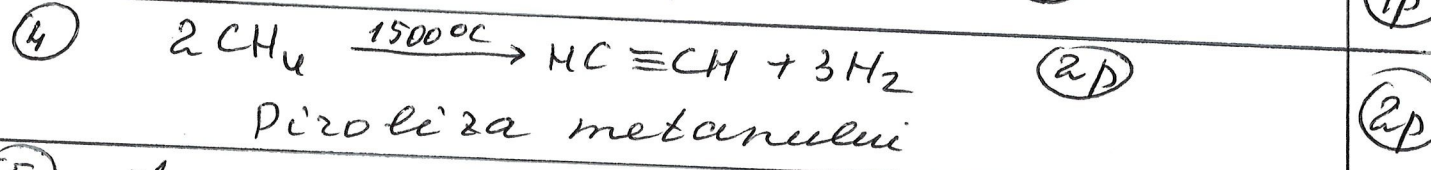 1p
④ 2CH₄ —1500°C→ HC≡CH + 3H₂ 2p
Piroliza metanului 2p